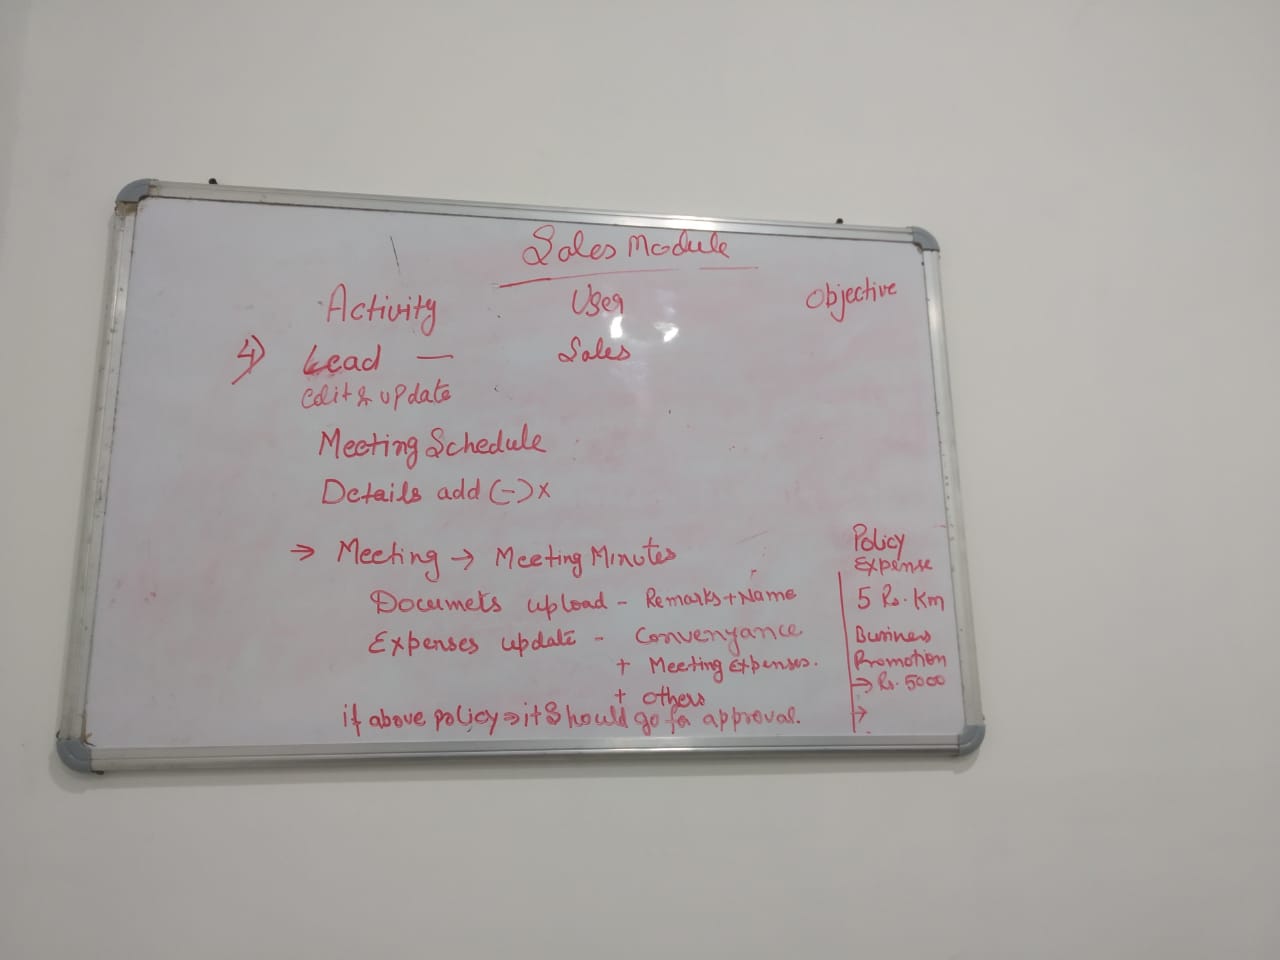 Sales Module
Activity User Objective
4) Lead — Sales
edit & update
Meeting Schedule
Details add (-) x
→ Meeting → Meeting Minutes
Documets upload - Remarks + Name
Expenses update - Convenyance
+ Meeting Expenses.
+ others
if above policy → it should go for approval.
Policy
Expense
5 Rs. Km
Business
Promotion
→ Rs. 5000
→